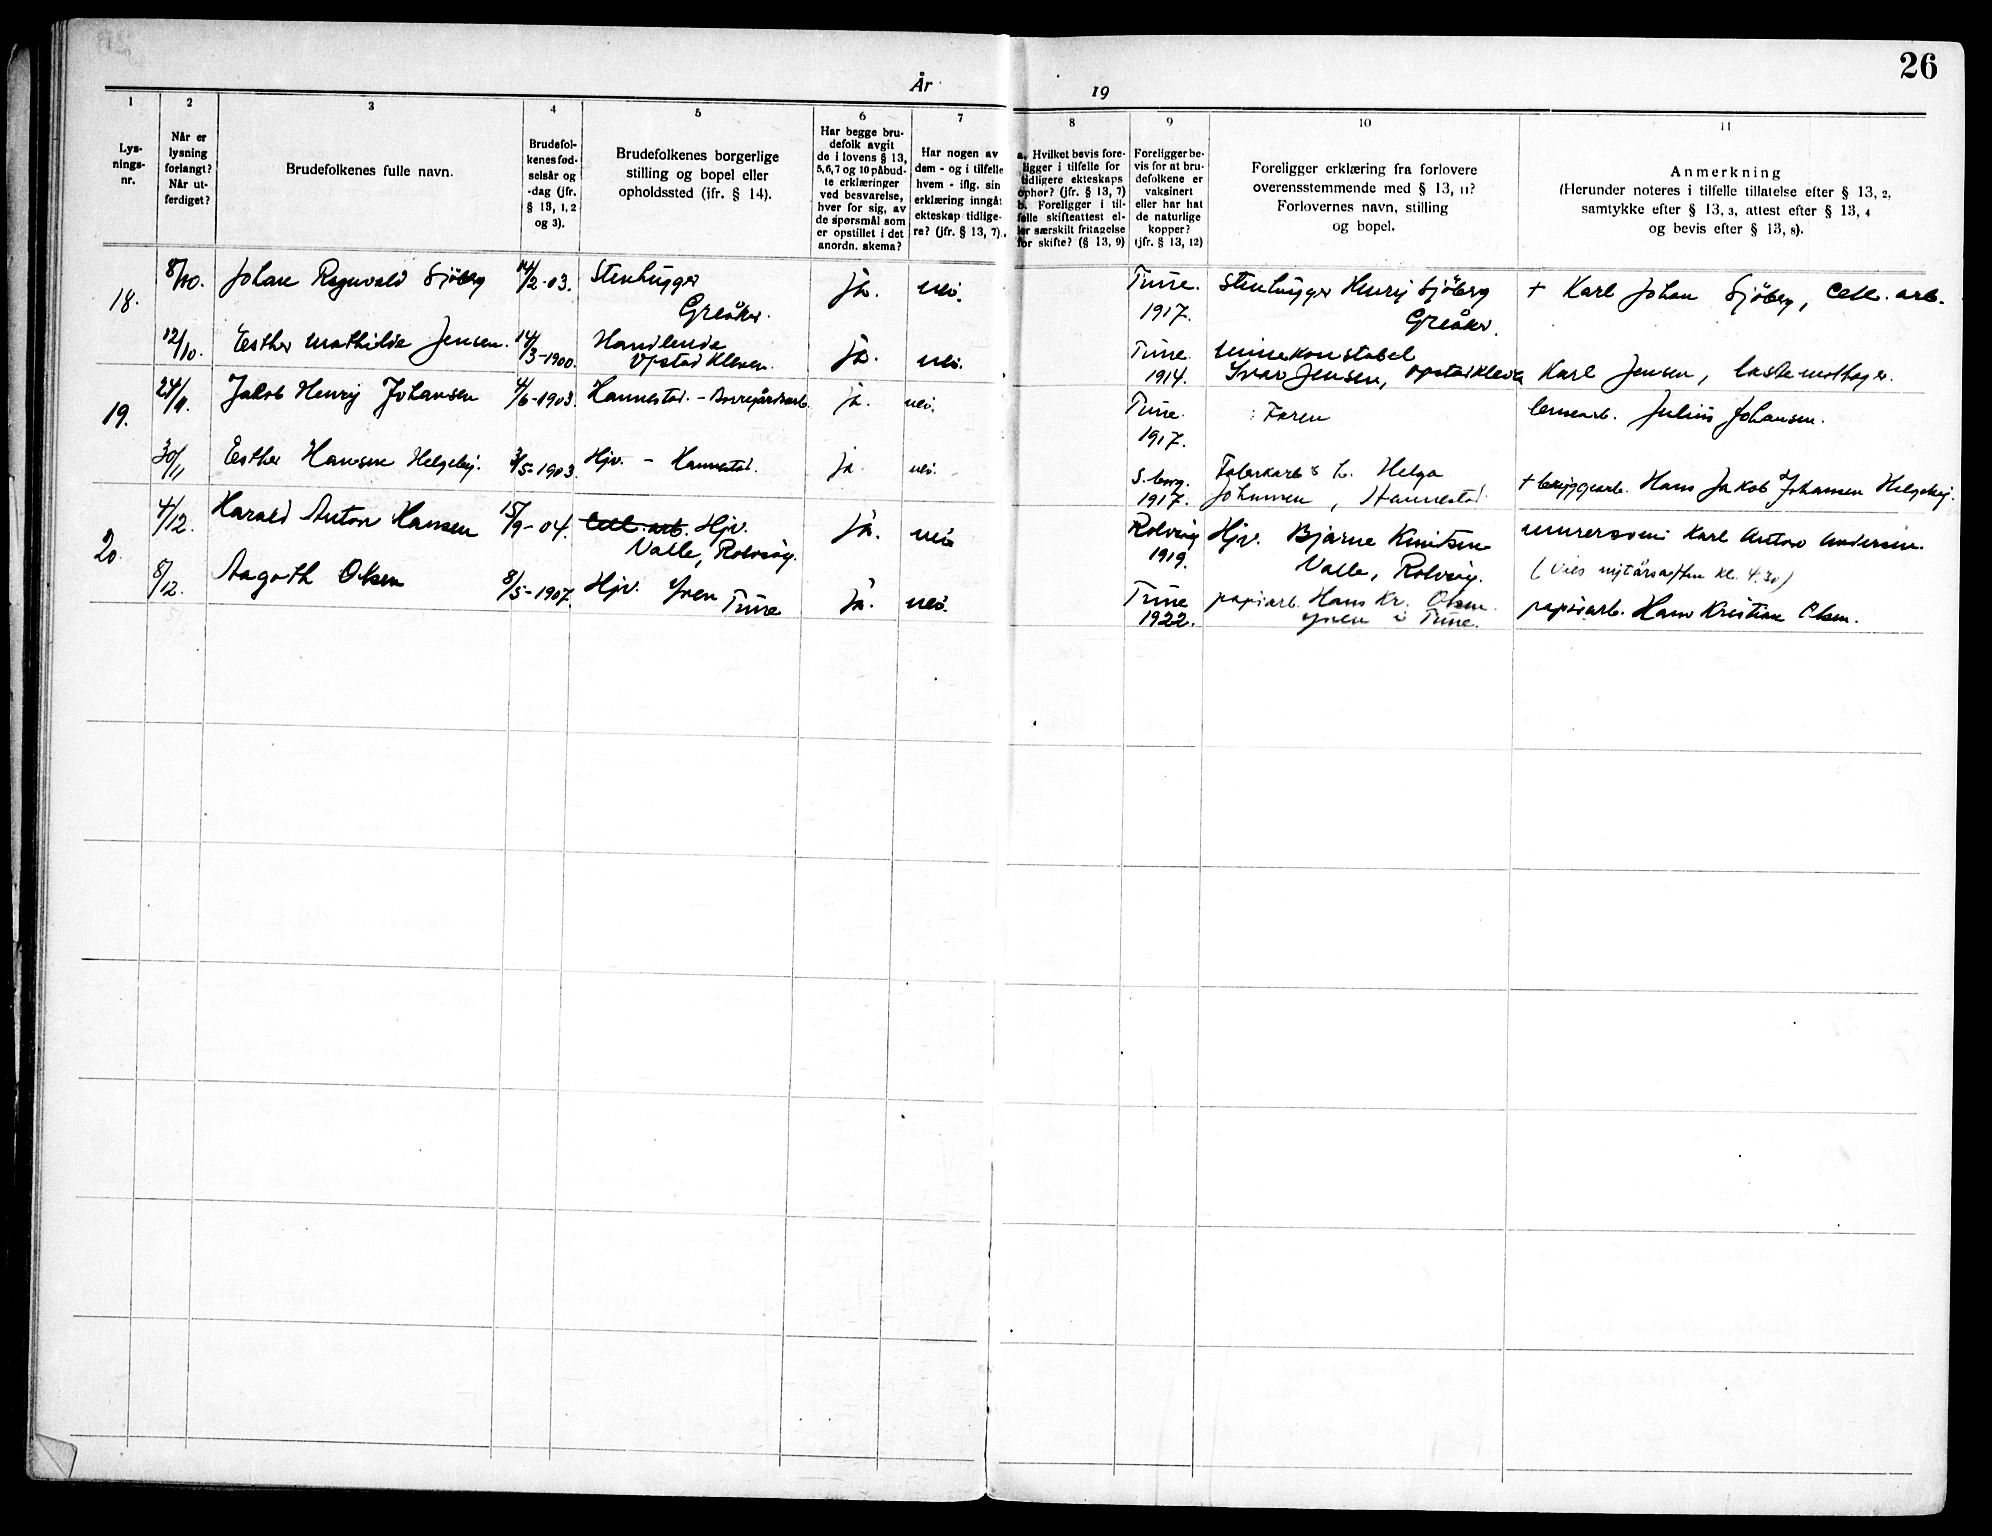 26
År 19
1 2 3 4 5 6 7 8 9 10 11
Lys-
nings-
nr.
Når er
lysning
forlangt?
Når ut-
ferdiget?
Brudefolkenes fulle navn.
Brudefol-
kenes fød-
selsår og
-dag (jfr.
§ 13, 1, 2
og 3).
Brudefolkenes borgerlige
stilling og bopel eller
opholdssted (ifr. § 14).
Har begge bru-
defolk avgit
de i lovens § 13,
5, 6, 7 og 10 påbud-
te erklæringer
ved besvarelse,
hver for sig, av
de spørsmål som
er opstillet i det
anordn. skema?
Har nogen av
dem - og i tilfelle
hvem - iflg. sin
erklæring inngåt
ekteskap tidlige-
re? (jfr. § 13, 7).
a. Hvilket bevis fore-
ligger i tilfelle for
tidligere ekteskaps
ophør? (jfr. § 13, 7)
b. Foreligger i til-
felle skifteattest el-
ler særskilt fritagelse
for skifte? (§ 13, 9)
Foreligger be-
vis for at bru-
defolkene er
vaksinert
eller har hat
de naturlige
kopper?
(jfr. § 13, 12)
Foreligger erklæring fra forlovere
overensstemmende med § 13, 11?
Forlovernes navn, stilling
og bopel.
Anmerkning
(Herunder noteres i tilfelle tillatelse efter § 13, 2,
samtykke efter § 13, 3, attest efter § 13, 4
og bevis efter § 13, 8).
18. 8/10. Johan Ragnvald Sjöberg 14/2-03. Stenhugger
Greåker. ja. nei. Tune.
1917. Stenhugger Henry Sjöberg
Greåker. + Karl Johan Sjöberg, Cell. arb.
12/10. Esther Mathilde Jensen. 14/3-1900. Handlende
Opstad Kleven. ja. nei. Tune
1914. Minekonstabel
Ivar Jensen, Opstad Kleven Karl Jensen, lastemottager.
19. 24/11. Jakob Henry Johansen 4/6-1903. Hannestad. - Borregårdsarb. ja. nei. Tune.
1917. : Faren Julius Johansen.
30/11 Esther Hansen Helgeby. 3/5-1903. Hjv. - Hannestad. ja. nei. S.borg.
1917. Helga
Johansen, Hannestad. + bryggearb. Hans Jakob Johansen Helgeby.
20 4/12. Harald Anton Hansen 15/9-04. Cell. arb. Hjv.
Valle, Rolvsøy. ja. nei Rolvsøy
1919. Hjv. Bjarne Knutsen
Valle, Rolvsøy. murersveni Karl Anton Andersen.
(Vies nytårsaften kl. 4.30)
8/12. Aagoth Olsen 8/5-1907. Hjv. Yven
Tune ja. nei. Tune
1922. papirarb. Hans Kr. Olsen.
Yven i Tune. papirarb. Hans Kristian Olsen.